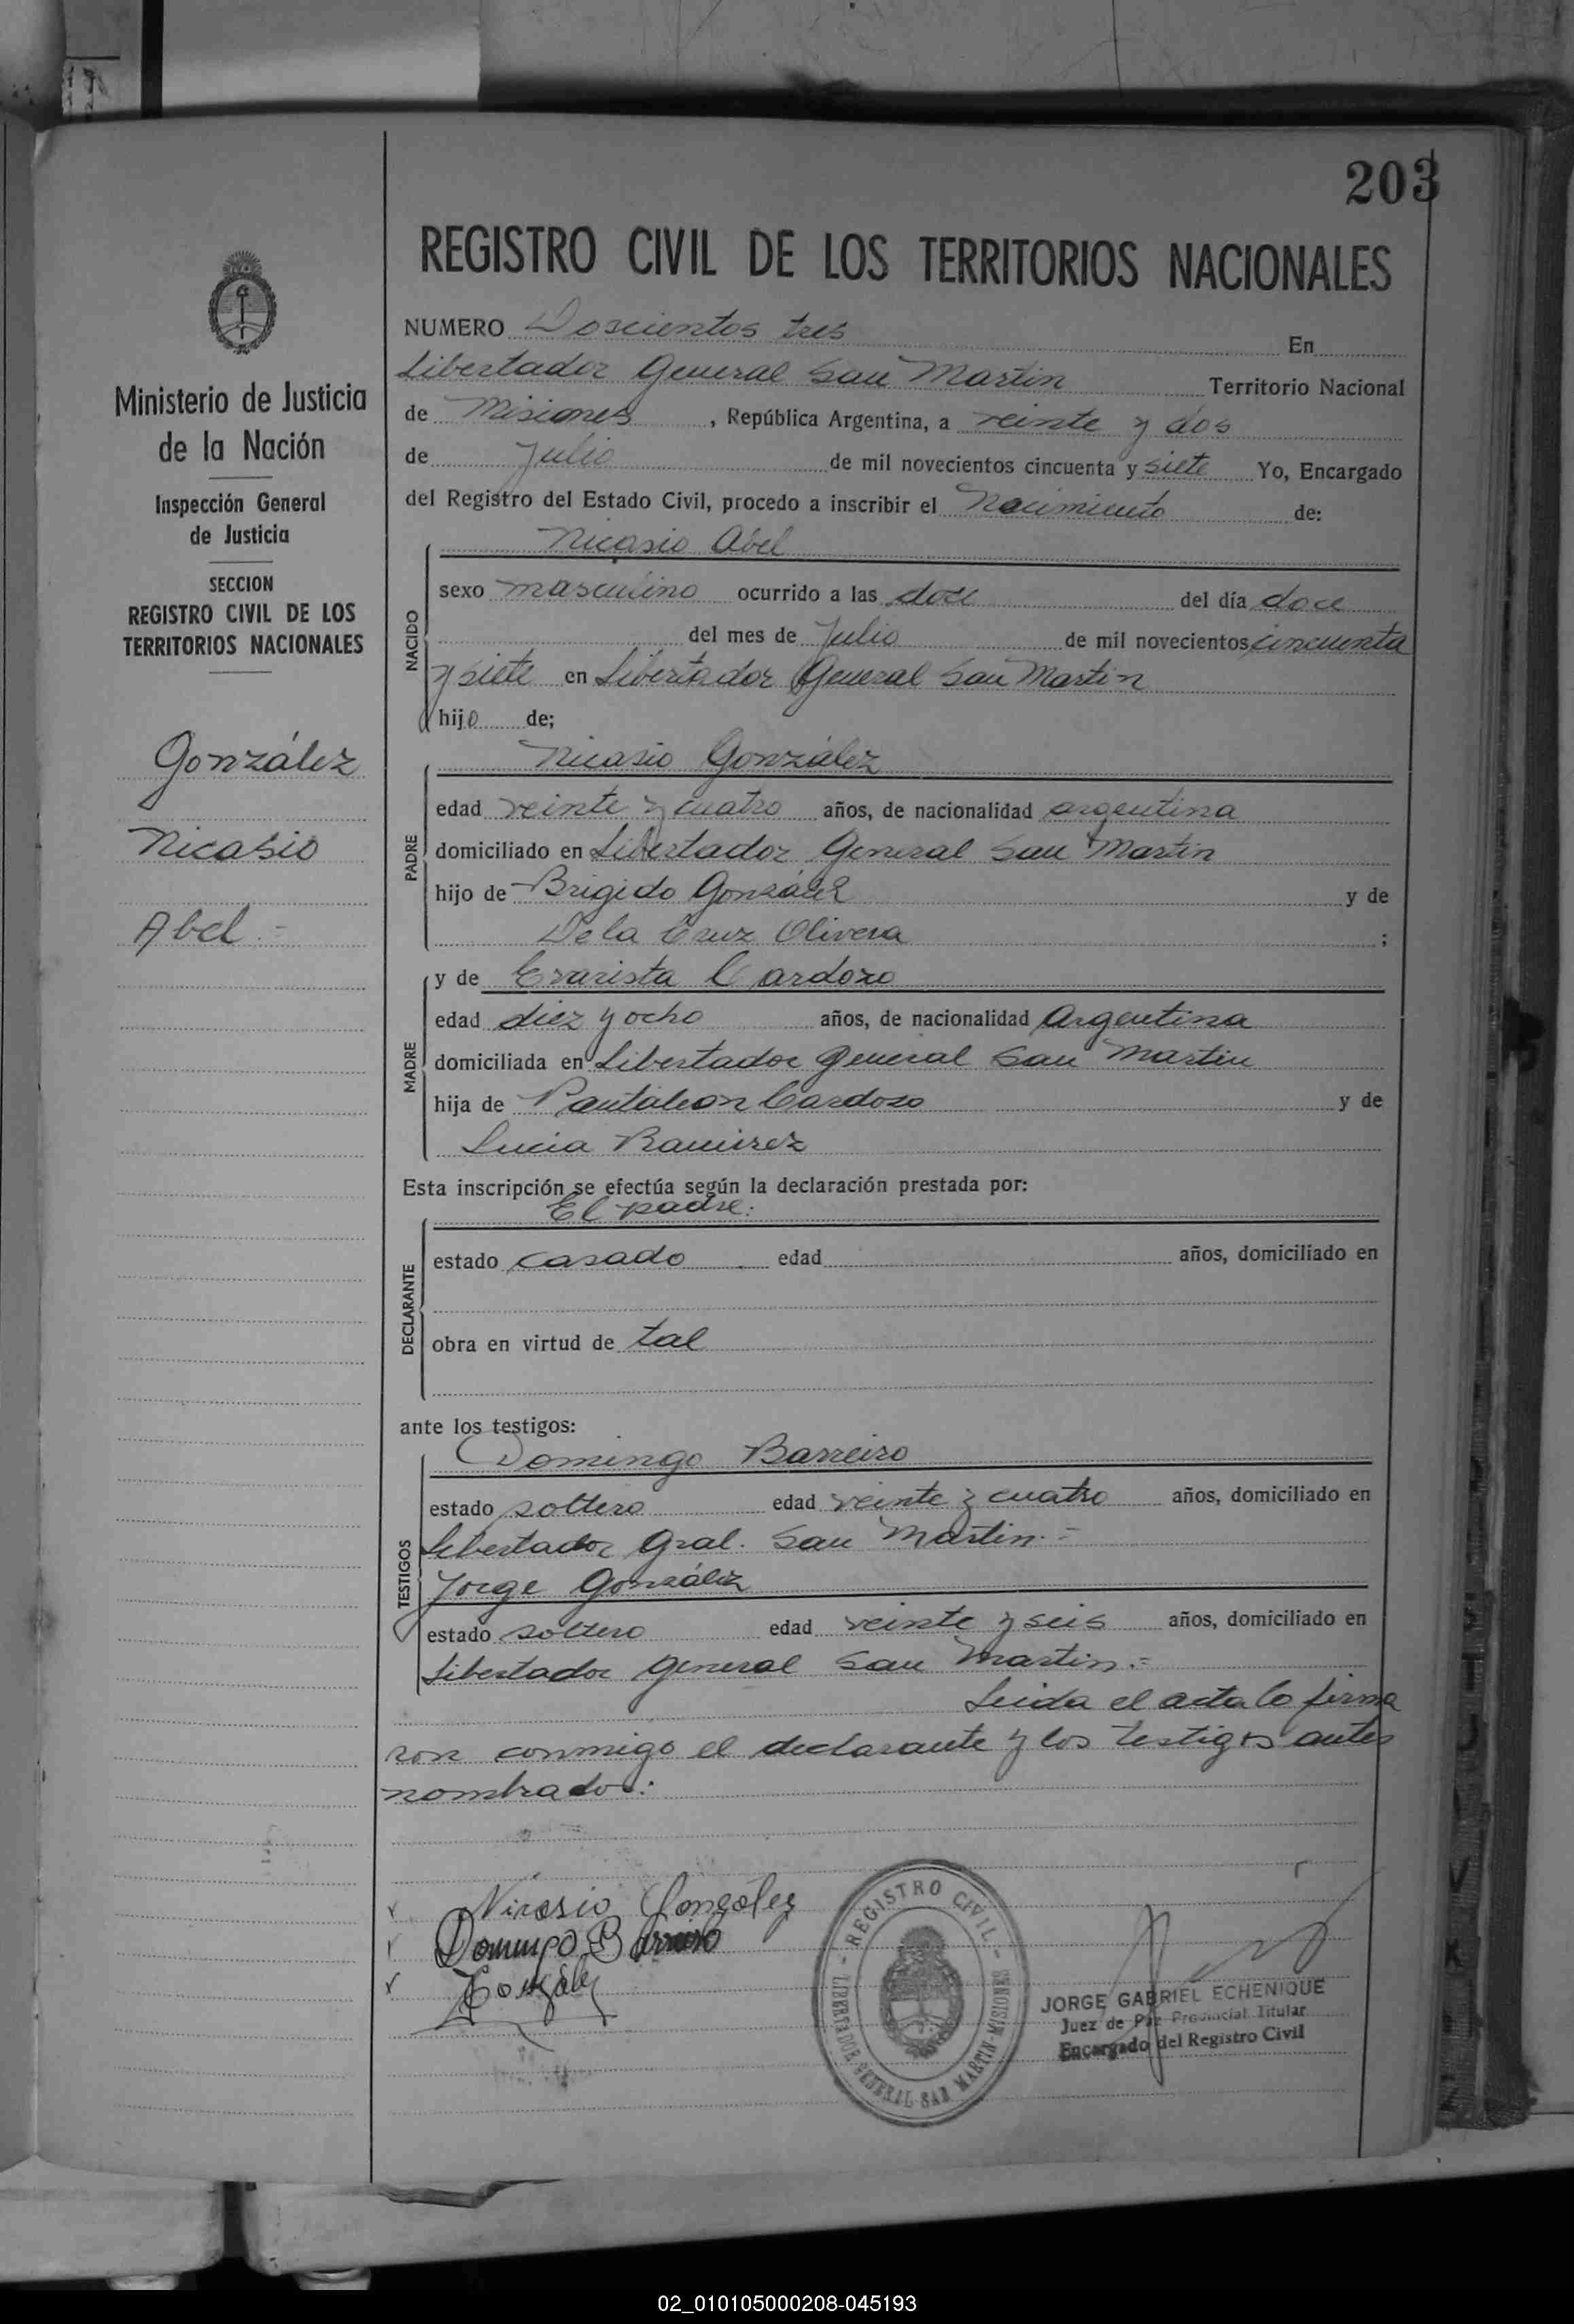 203
REGISTRO CIVIL DE LOS TERRITORIOS NACIONALES
Ministerio de Justicia
de la Nación
Inspección General
de Justicia
SECCION
REGISTRO CIVIL DE LOS
TERRITORIOS NACIONALES
González
Nicasio
Abel.=
NUMERO Doscientos tres En
Libertador General San Martin Territorio Nacional
de Misiones, República Argentina, a veinte y dos
de Julio de mil novecientos cincuenta y siete Yo, Encargado
del Registro del Estado Civil, procedo a inscribir el Nacimiento de:
NACIDO
Nicasio Abel
sexo masculino ocurrido a las doce del día doce
del mes de Julio de mil novecientos cincuenta
y siete en Libertador General San Martin
hijo de;
PADRE
Nicasio González
edad veinte y cuatro años, de nacionalidad argentina
domiciliado en Libertador General San Martin
hijo de Brigido González y de
De la Cruz Olivera ;
MADRE
y de Evarista Cardozo
edad diez y ocho años, de nacionalidad Argentina
domiciliada en Libertador General San Martin
hija de Pantaleon Cardozo y de
Lucia Ramirez
Esta inscripción se efectúa según la declaración prestada por:
DECLARANTE
El padre:
estado casado edad años, domiciliado en
obra en virtud de tal
ante los testigos:
TESTIGOS
Domingo Barreiro
estado soltero edad veinte y cuatro años, domiciliado en
Libertador Gral. San Martin.=
Jorge González
estado soltero edad veinte y seis años, domiciliado en
Libertador General San Martin.=
Leida el acta lo firma
ron conmigo el declarante y los testigos antes
nombrados:
Nicasio González
Domingo Barreiro
González
REGISTRO CIVIL
LIBERTADOR GENERAL SAN MARTIN-MISIONES
JORGE GABRIEL ECHENIQUE
Juez de Paz Provincial Titular
Encargado del Registro Civil
02_010105000208-045193